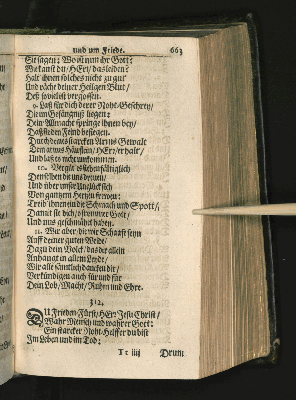 und um Friede. 663
Sie sagen: Wo ist nun ihr Gott?
Wie kanst du/ HErr/ das leiden?
Halt ihnen solches nicht zu gut
Und räche deiner Heilgen Blut/
Deß so viel ist vergossen.
9. Laß für dich derer Noht-Geschrey/
Die im Gefängnuß liegen:
Dein Allmacht springe ihnen bey/
Daß sie den Feind besiegen.
Durch deins starcken Arms Gewalt
Dein armes Häuflein/ HErr/ erhalt/
Und laß es nicht umkommen.
10. Vergilt es siebenfältiglich
Denselben die uns dräuen/
Und über unser Unglück sich
Von gantzem Hertzen freuen:
Treib ihnen ein die Schmach und Spott/
Damit sie dich/ o frommer Gott/
Und uns geschmähet haben.
11. Wir aber/ die wir Schaafe seyn
Auff deiner guten Weide/
Dazu dein Volck/ das dir allein
Anhanget in allem Leyde/
Wir alle sämtlich dancken dir/
Verkündigen auch für und für
Dein Lob/ Macht/ Ruhm und Ehre.
312.
DU Frieden-Fürst/ HErr Jesu Christ/
Wahr Mensch und wahrer Gott:
Ein starcker Noht-Helffer du bist
Im Leben und im Tod:
Tt iiij Drum